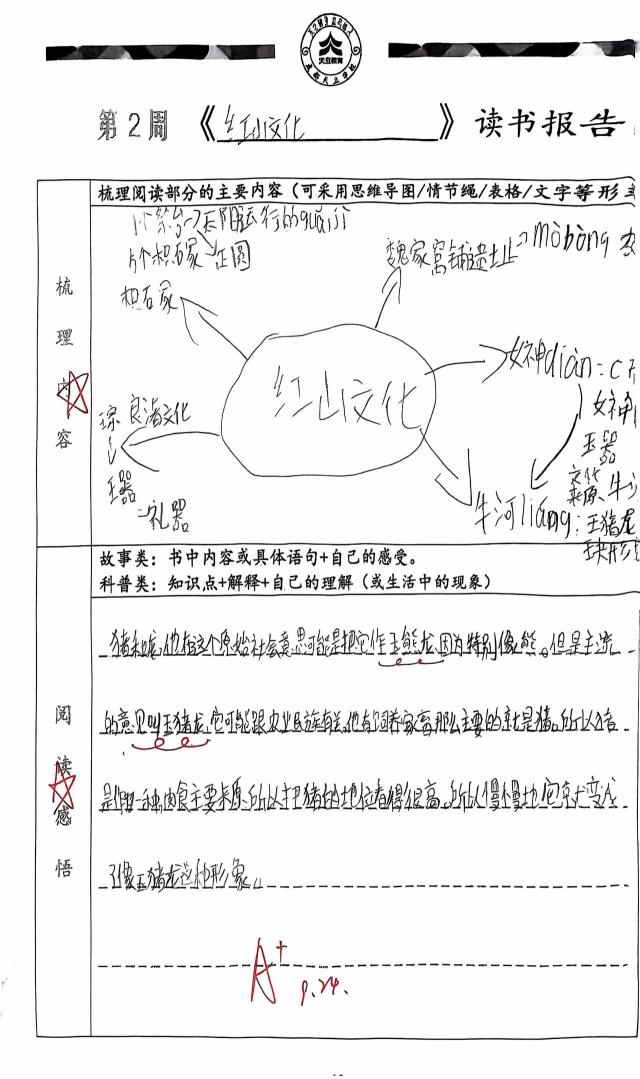 天立教育
成都天立学校
第2周 《红山文化》 读书报告
梳理阅读部分的主要内容（可采用思维导图/情节绳/表格/文字等形
梳理内容
太阳运行的guǐjì
个积石冢→正圆
积石冢
魏家窝铺遗址→
红山文化
女神diàn：
女神
玉器
文化
来源、牛
牛河liáng：玉猪龙
玦形
琮 良渚文化
玉器
=礼器
故事类：书中内容或具体语句+自己的感受。
科普类：知识点+解释+自己的理解（或生活中的现象）
阅读感悟
猪和龙,他指这个原始社会意思可能是把它作玉熊龙,因为特别像熊。但是主流
的意见叫玉猪龙,它可能跟农业民族有关,他有饲养家畜那么主要的就是猪。所以猪
是他一种肉食主要来原,所以才把猪的地位看得很高。所以慢慢地它就变成
了像玉猪龙这种形象。
A+
9.24.